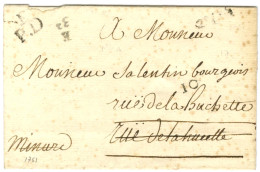 P.D
A Monsieur
Monsieur Salentin bourgeois
rüe de la huchette
10
Rüe de la hucette
Minure
1781